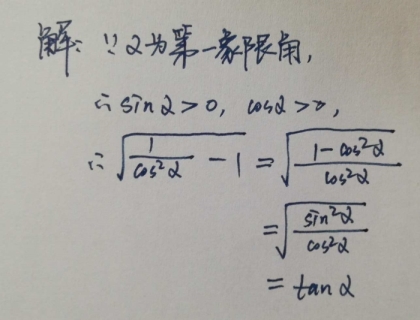 解：∵α为第一象限角，
∴ sinα>0，cosα>0，
∴ √(1/cos²α − 1) = √((1−cos²α)/cos²α)
= √(sin²α/cos²α)
= tanα